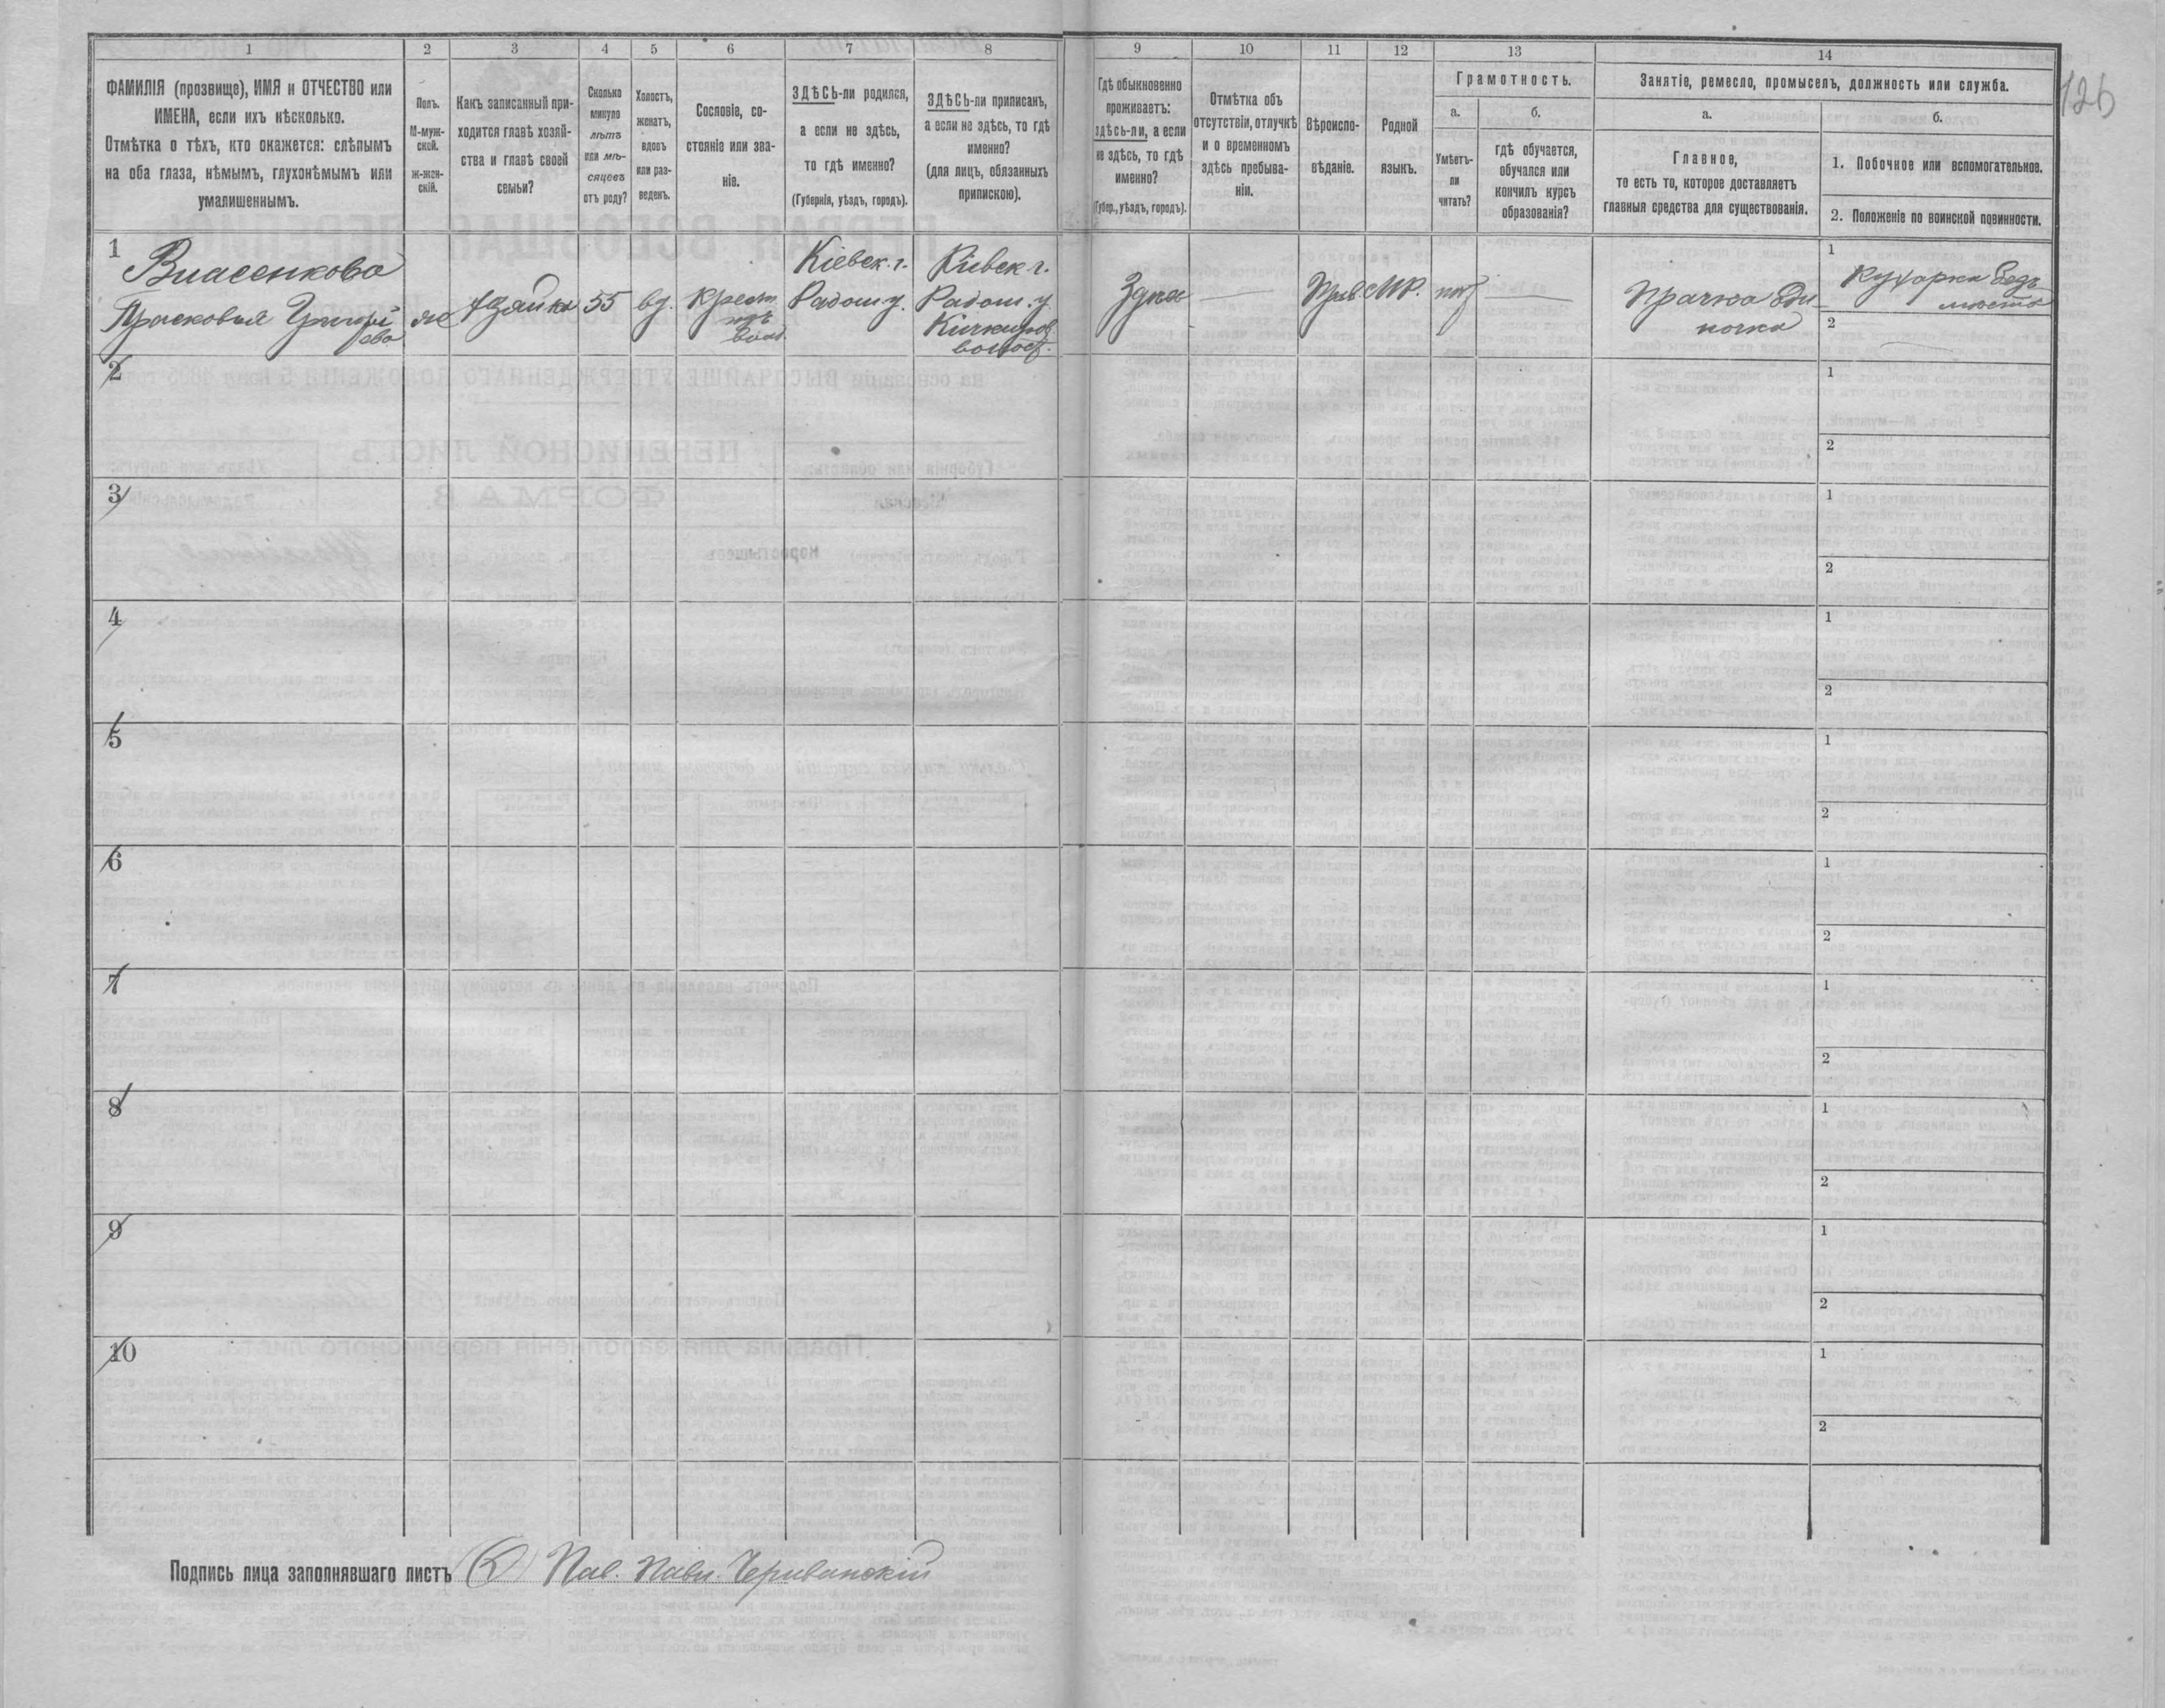 1 2 3 4 5 6 7 8 9 10 11 12 13 14
ФАМИЛІЯ (прозвище), ИМЯ и ОТЧЕСТВО или
ИМЕНА, если ихъ нѣсколько.
Отмѣтка о тѣхъ, кто окажется: слѣпымъ
на оба глаза, нѣмымъ, глухонѣмымъ или
умалишеннымъ.
Полъ.
М-муж-
ской.
Ж-жен-
скій.
Какъ записанный при-
ходится главѣ хозяй-
ства и главѣ своей
семьи?
Сколько
минуло
лѣтъ
или мѣ-
сяцевъ
отъ роду?
Холостъ,
женатъ,
вдовъ
или раз-
веденъ.
Сословіе, со-
стояніе или зва-
ніе.
ЗДѢСЬ-ли родился,
а если не здѣсь,
то гдѣ именно?
(Губернія, уѣздъ, городъ).
ЗДѢСЬ-ли приписанъ,
а если не здѣсь, то гдѣ
именно?
(для лицъ, обязанныхъ
припискою).
Гдѣ обыкновенно
проживаетъ:
здѣсь-ли, а если
не здѣсь, то гдѣ
именно?
(Губер., уѣздъ, городъ).
Отмѣтка объ
отсутствіи, отлучкѣ
и о временномъ
здѣсь пребыва-
ніи.
Вѣроиспо-
вѣданіе.
Родной
языкъ.
Грамотность.
а.
Умѣетъ-
ли
читать?
б.
гдѣ обучается,
обучался или
кончилъ курсъ
образованія?
Занятіе, ремесло, промыселъ, должность или служба.
а.
Главное,
то есть то, которое доставляетъ
главныя средства для существованія.
б.
1. Побочное или вспомогательное.
2. Положеніе по воинской повинности.
126
1
Власенкова
Прасковья Григорі
ева
ж
хозяйка
55
вд.
Крест.
изъ
влад.
Кіевск. г.
Радом. у.
Кіевск г.
Радом. у
Кичкиров
волост.
Здѣсь
Прав
МР.
нѣт
Прачка оди
ночка
1
Кухарка безъ
мѣста
2
2
1
2
3
1
2
4
1
2
5
1
2
6
1
2
7
1
2
8
1
2
9
1
2
10
1
2
Подпись лица заполнявшаго листъ Пав. Павл. Чериванскій